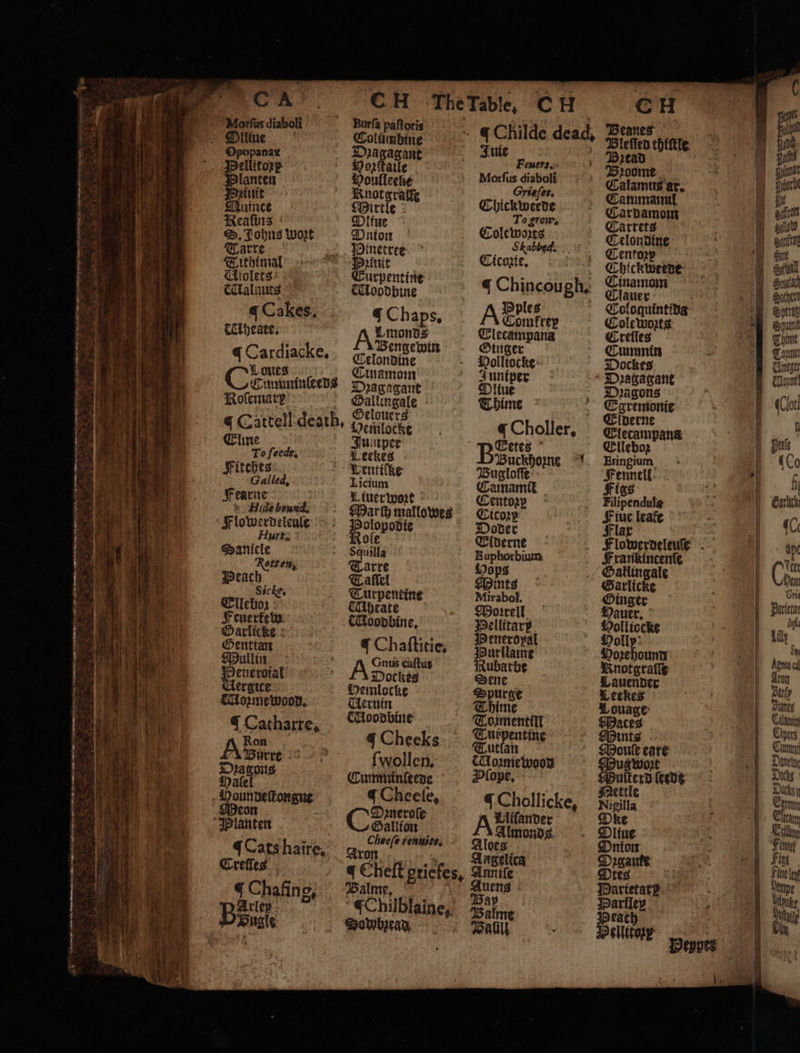 CA
CH The Table, CH
CH
Morsus diaboli
Oliue
Opopanax
Pellitorp
Planten
Priuit
Quince
Reasins
S. Johns wort
Tarre
Tithimal
Uiolets
Walnuts
¶ Cakes.
Wheate.
¶ Cardiacke.
Cloues
Cumminseeds
Rosemary
¶ Cattell death,
Eline
To feede.
Fitches
Galled,
Fearne
Hide bound.
Flowerdeleuse
Hurt.
Sanicle
Rotten,
Peach
Sicke.
Ellebor
Feuerfew
Garlicke
Gentian
Mullin
Peneroial
Uergice
Wormewood.
¶ Catharre,
ARon
Burre
Dragons
Hasel
Houndestongue
Meon
Planten
¶ Cats haire.
Cresses
¶ Chafing,
BArley
Bugle
Bursa pastoris
Columbine
Dragagant
Horstaile
Houslecke
Knotgrasse
Mirtle
Oliue
Onion
Pinetree
Priuit
Turpentine
Woodbine
¶ Chaps,
ALmonds
Bengewin
Celondine
Cinamom
Dragagant
Gallingale
Gelouers
Hemlocke
Juniper
Leekes
Lentiske
Licium
Liuerwort
Marsh mallowes
Polopodie
Rose
Squilla
Tarre
Tassel
Turpentine
Wheate
Woodbine.
¶ Chastitie,
AGnus castus
Dockes
Hemlocke
Ueruin
Woodbine
¶ Cheeks
swollen.
Cumminseede
¶ Cheese,
CDmerose
Gallion
Cheese rennies.
Aron
¶ Chest griefes,
Balme.
¶Chilblaine,
Sowbread
¶ Childe dead,
Juie
Feuers.
Morsus diaboli
Griefes.
Chickweede
To grow.
Coleworts
Skabbed.
Cicorie.
¶ Chincough,
APples
Comfrey
Elecampana
Ginger
Holliocke
Juniper
Oliue
Thime
¶ Choller,
BEetes
Buckhorne
Buglosse
Camamil
Centory
Cicory
Doder
Elderne
Euphorbium
Hops
Mints
Mirabol.
Morell
Pellitary
Peneroyal
Purslaine
Rubarbe
Sene
Spurge
Thime
Tormentill
Turpentine
Tutsan
Wormewood
Plope.
¶ Chollicke,
ALisander
Almonds
Aloes
Angelica
Annise
Auens
Bay
Balme
Basill
Beanes
Blessed thistle
Bread
Broome
Calamus ar.
Cammamil
Cardamom
Carrets
Celondine
Centory
Chickweede
Cinamom
Clauer
Coloquintida
Coleworts
Cresses
Cummin
Dockes
Dragagant
Dragons
Egremonie
Elderne
Elecampana
Ellebor
Eringium
Fennell
Figs
Filipendula
Fiue leafe
Flax
Flowerdeleuse
Frankincense
Gallingale
Garlicke
Ginger
Hauer.
Holliocke
Holly
Horehound
Knotgrasse
Lauender
Leekes
Louage
Maces
Mints
Mouse eare
Mugwort
Musterd seede
Nettle
Nigilla
Oke
Oliue
Onion
Oigante
Otes
Parietary
Parsley
Peach
Pellitory
Pepper